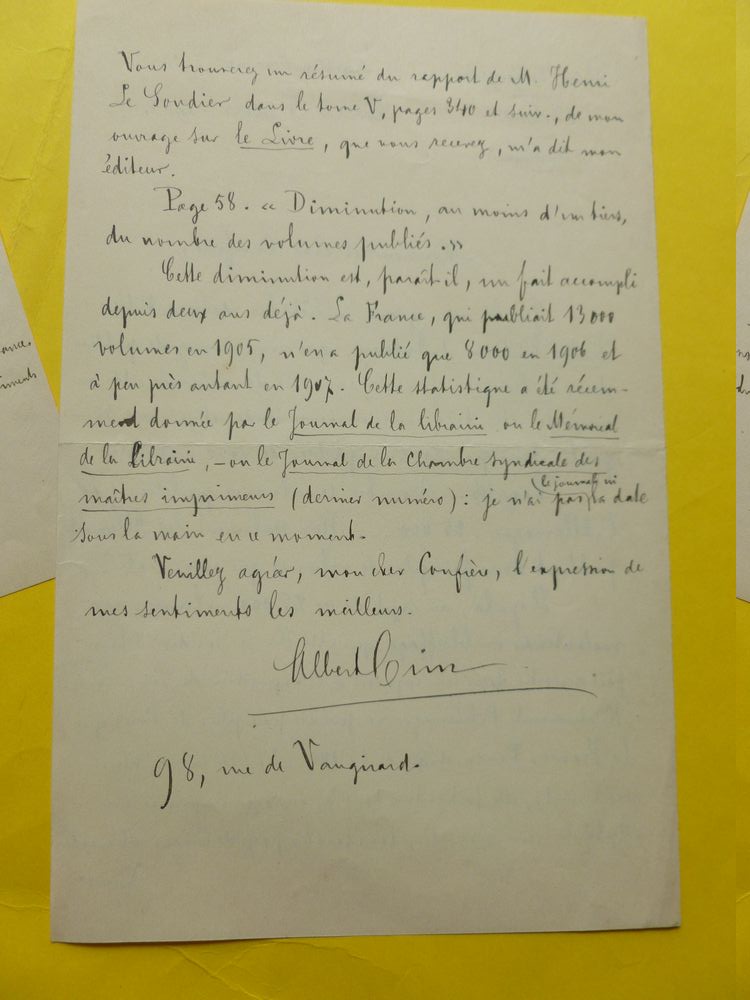 Vous trouverez un résumé du rapport de M. Henri
Le Soudier dans le tome V, pages 340 et suiv., de mon
ouvrage sur le Livre, que vous recevrez, m'a dit mon
éditeur.
Page 58. « Diminution, au moins d'un tiers,
du nombre des volumes publiés. »
Cette diminution est, paraît-il, un fait accompli
depuis deux ans déjà. La France, qui publiait 13000
volumes en 1905, n'en a publié que 8000 en 1906 et
à peu près autant en 1907. Cette statistique a été récem-
ment donnée par le Journal de la librairie ou le Mémorial
de la Librairie, – ou le Journal de la Chambre syndicale des
maîtres imprimeurs (dernier numéro) : je n'ai pas le journal ni la date
sous la main en ce moment.
Veuillez agréer, mon cher Confrère, l'expression de
mes sentiments les meilleurs.
Albert Cim
98, rue de Vaugirard.